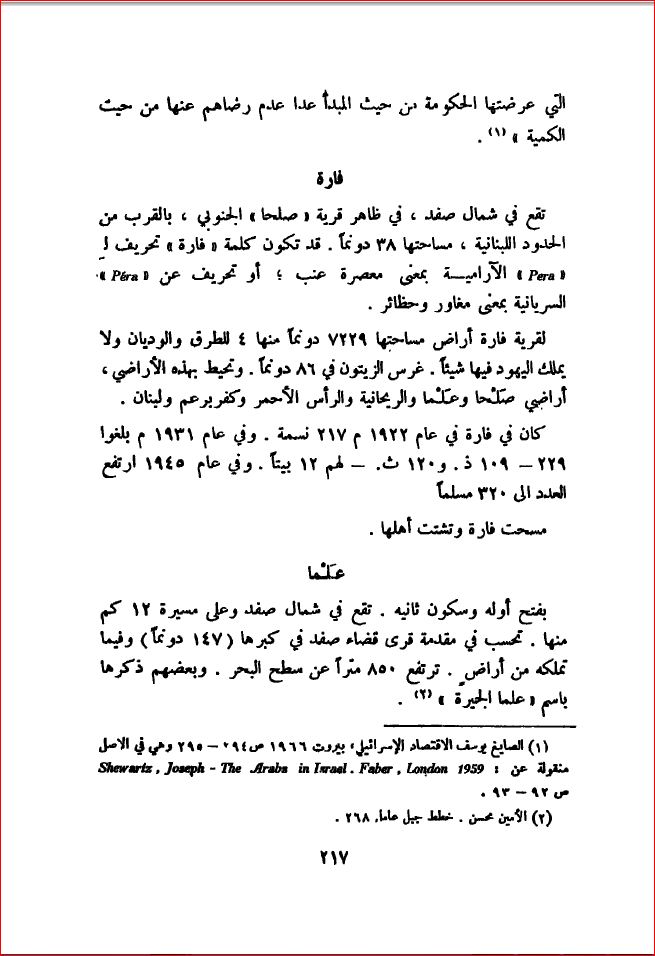 التي عرضتها الحكومة من حيث المبدأ عدا عدم رضاهم عنها من حيث
الكمية » (١) .
فارة
تقع في شمال صفد ، في ظاهر قرية « صلحا » الجنوبي ، بالقرب من
الحدود اللبنانية ، مساحتها ٣٨ دونماً . قد تكون كلمة « فارة » تحريف لـ
« Pera » الآرامية بمعنى معصرة عنب ؛ أو تحريف عن « Péra »
السريانية بمعنى مغاور وحظائر .
لقرية فارة أراض مساحتها ٧٢٢٩ دونماً منها ٤ للطرق والوديان ولا
يملك اليهود فيها شيئاً . غرس الزيتون في ٨٦ دونماً . وتحيط بهذه الأراضي ،
أراضي صَلْحا وعَلْما والريحانية والرأس الأحمر وكفربرعم ولبنان .
كان في فارة في عام ١٩٢٢ م ٢١٧ نسمة . وفي عام ١٩٣١ م بلغوا
٢٢٩ – ١٠٩ ذ . و ١٢٠ ث . – لهم ١٢ بيتاً . وفي عام ١٩٤٥ ارتفع
العدد الى ٣٢٠ مسلماً
مسحت فارة وتشتت أهلها .
عَلْما
بفتح أوله وسكون ثانيه . تقع في شمال صفد وعلى مسيرة ١٢ كم
منها . تحسب في مقدمة قرى قضاء صفد في كبرها ( ١٤٧ دونماً ) وفيما
تملكه من أراضٍ . ترتفع ٨٥٠ متراً عن سطح البحر . وبعضهم ذكرها
باسم « علما الخيرة » (٢) .
(١) الصايغ يوسف الاقتصاد الإسرائيلي ، بيروت ١٩٦٦ ص ٢٩٤ – ٢٩٥ وهي في الاصل
منقولة عن : Shewartz , Joseph - The Arabs in Israel . Faber , London 1959
ص ٩٢ – ٩٣ .
(٢) الأمين محسن . خطط جبل عامل ٢٦٨ .
٢١٧